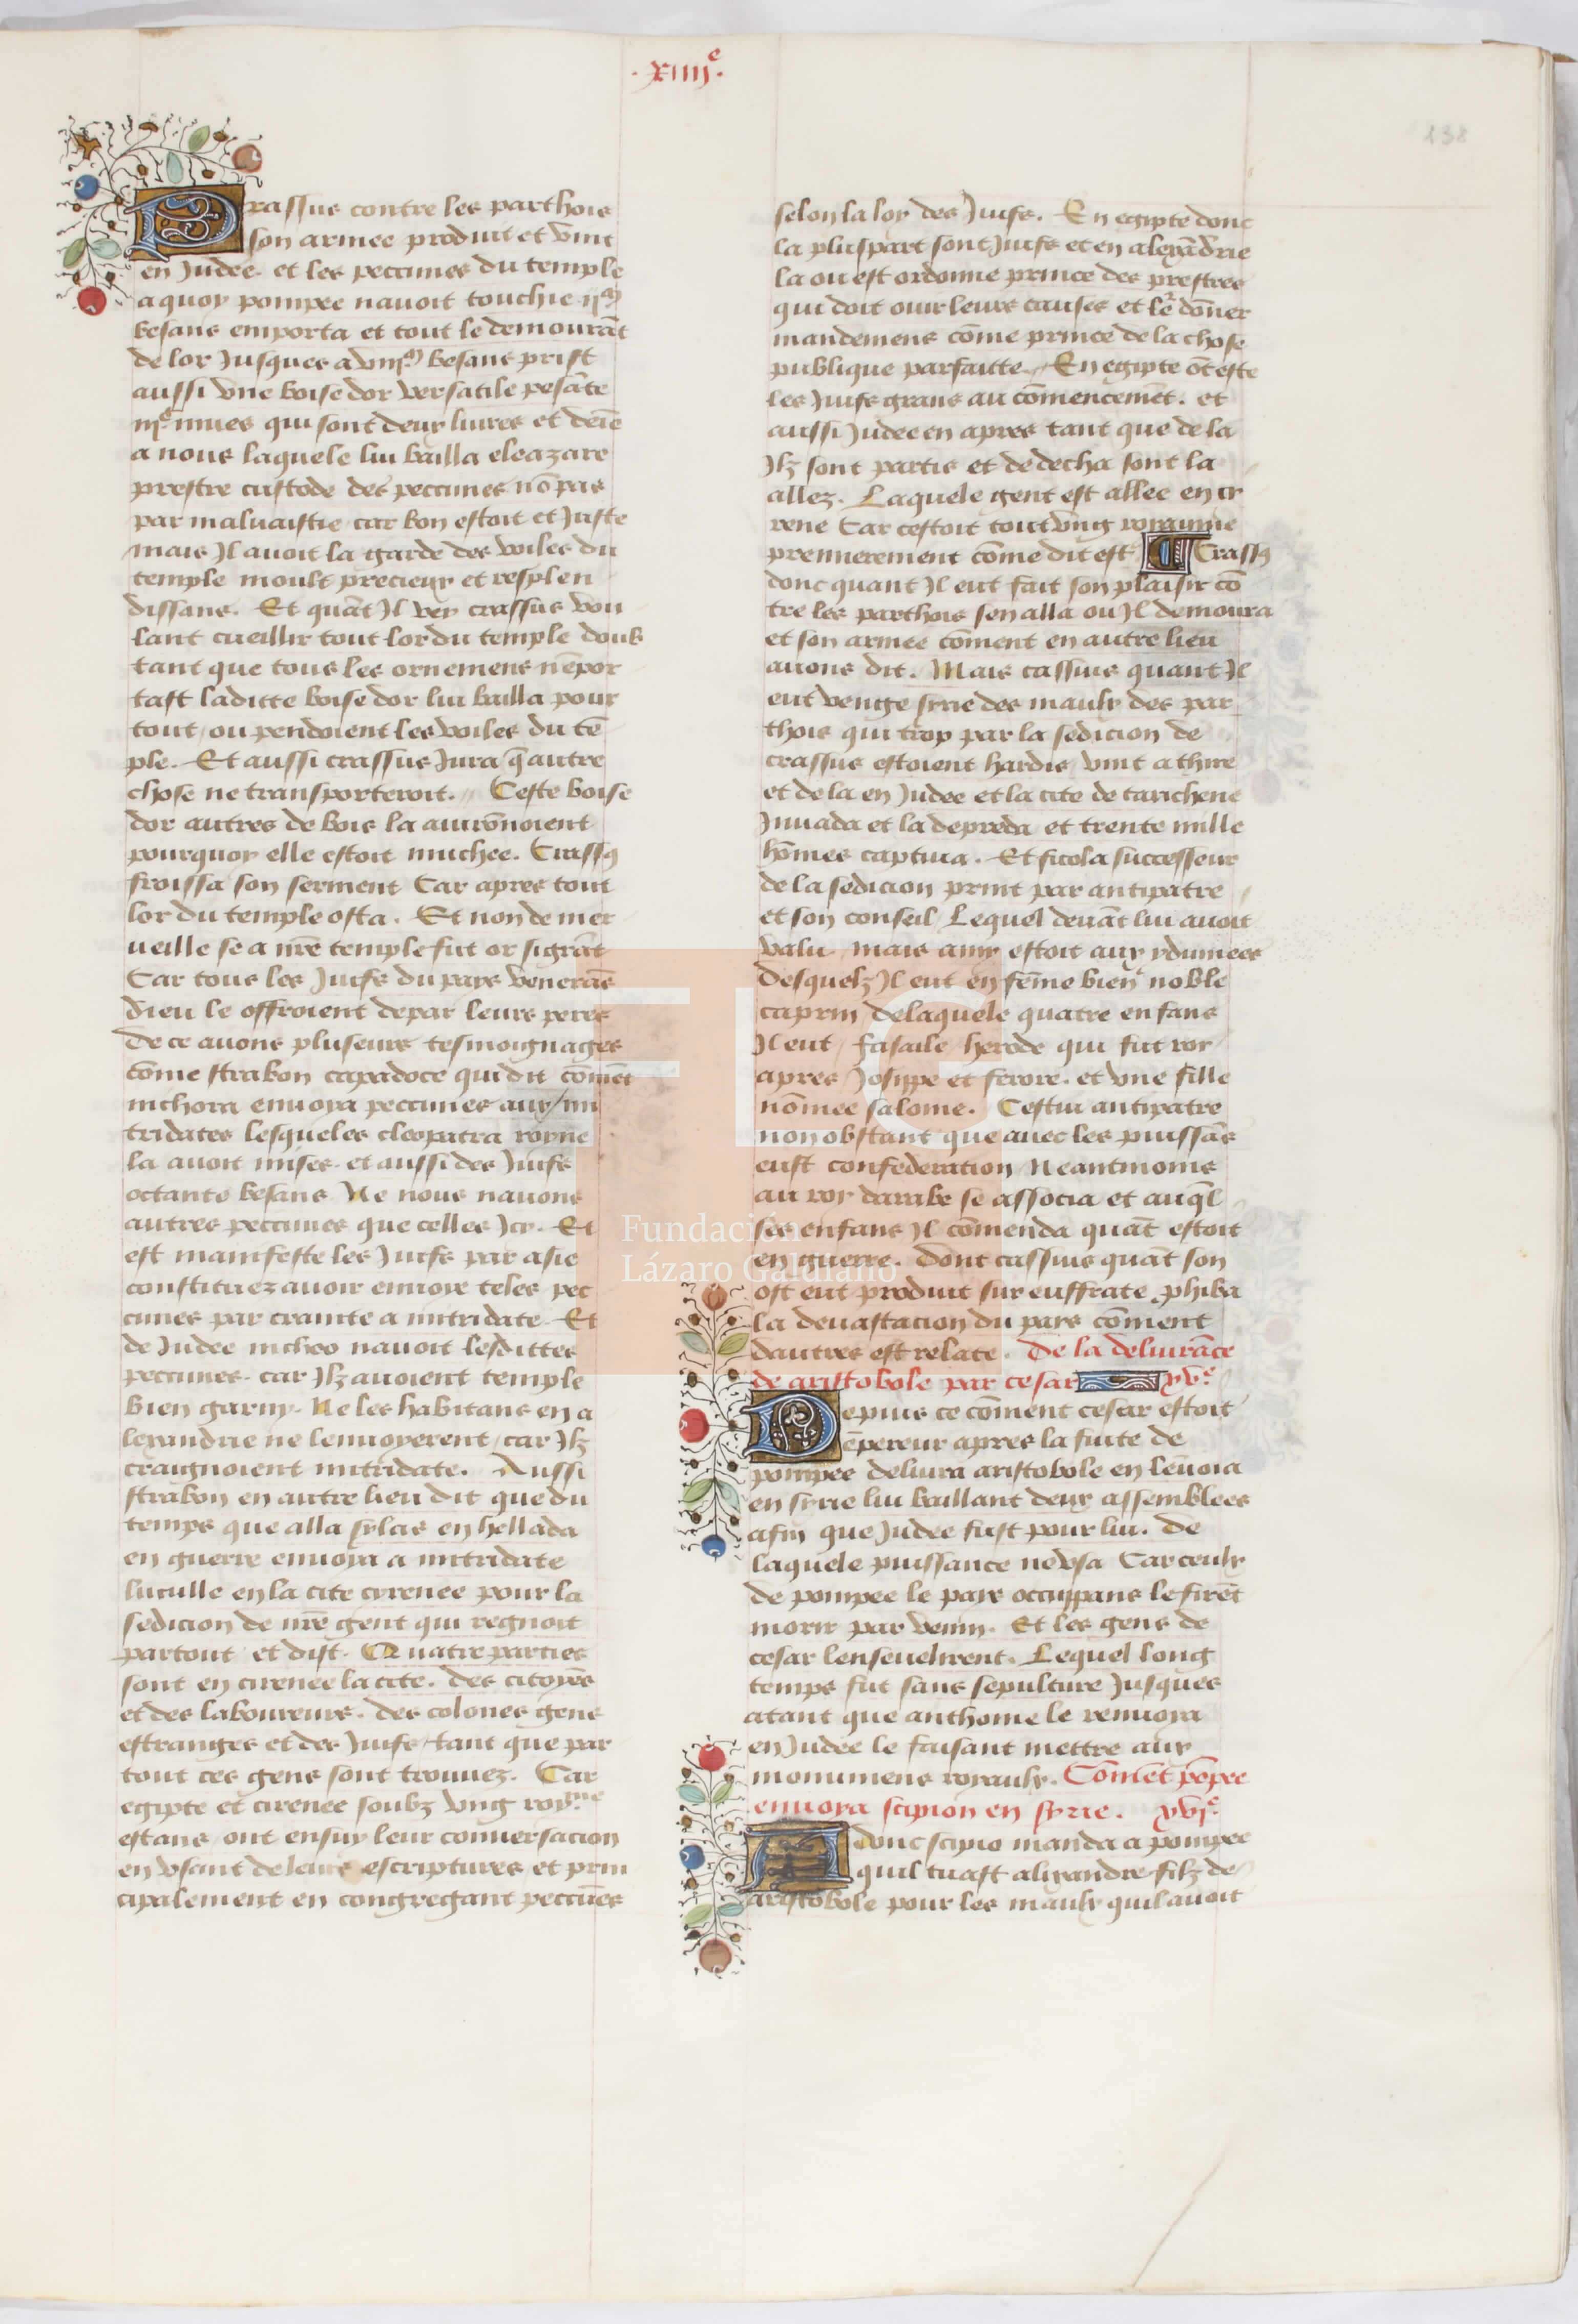 .xiiij.e
138
Crassus contre les parthois
son armee produit et vint
en Judee. et les peccunes du temple
a quoy pompee navoit touchie ijM
besans emporta et tout le demourāt
de lor Jusques a viijM besans prist
aussi vne boise dor versatile pesāte
iijc mnes qui sont deux livres et demē
a nous laquele lui bailla eleazare
prestre custode des peccunes nō pas
par malvaistie car bon estoit et Juste
mais Il avoit la garde des voiles du
temple moult precieux et resplen
dissans. Et quāt Il vey crassus vou
lant cueillir tout lor du temple doub
tant que tous les ornemens nēpor
tast laditte boise dor lui bailla pour
tout, ou pendoient les voiles du tē
ple. Et aussi crassus Jura q̄ autre
chose ne transporteroit. Ceste boise
dor autres de bois la avirōnoient
pourquoy elle estoit muchee. Crassꝯ
froissa son serment Car apres tout
lor du temple osta. Et non de mer
veille se a nr̄e temple fut or si grāt
Car tous les Juifs du pays venerās
dieu le offroient de par leurs peres
De ce avons pluseurs tesmoignages
cōme strabon capadoce qui dit cōmēt
nichora envoya peccunes aux / mi
tridates lesqueles cleopatra royne
la avoit mises. et aussi des Juifs
octante besans Ne nous navons
autres peccunes que celles Icy. Et
est manifeste les Juifs par asie
constituez avoir envoye teles pec
cunes par crainte a mitridate. Et
de Judee nicheo navoit lesdittes
peccunes. car Ilz avoient temple
bien garny. Ne les habitans en a
lexandrie ne lenvoyerent / car Ilz
craignoient mitridate. Aussi
strabon en autre lieu dit que du
temps que alla sylas en hellada
en guerre envoya a mitridate
luculle en la cite cyrenee pour la
sedicion de nr̄e gent qui regnoit
partout et dist. Quatre parties
sont en cirenee la cite. des citoyēs
et des laboureurs. des colones gens
estranges et des Juifs / tant que par
tout ces gens sont trouvez. Car
egipte et cirenee soubz vng royme
estans / ont ensuy leur conversacion
en vsant de leurs escriptures et prin
cipalement en congregant peccunēs
selon la loy des Juifs. En egipte donc
la pluspart sont Juifs et en alexādrie
la ou est ordonne prince des prestres
qui doit ouir leurs causes et ler dōner
mandemens cōme prince de la chose
publique parfaitte. En egipte ōt este
les Juifs grans au cōmencemēt. et
aussi Judee en apres tant que de la
Ilz sont partis et de decha sont la
allez. Laquele gent est allee en ci
rene Car cestoit tout vng royaume
premierement cōme dit est Crassꝯ
donc quant Il eut fait son plaisir cō
tre les parthois sen alla ou Il demoura
et son armee cōment en autre lieu
avons dit. Mais cassius quant Il
eut venge syrie des maulx des par
thois qui trop par la sedicion de
crassus estoient hardis vint a thire
et de la en Judee et la cite de tarichene
Jnvada et la depreda et trente mille
hōmes captiva. Et ficola successeur
de la sedicion print par antipatre
et son conseil Lequel devāt lui avoit
valu. mais amy estoit aux ydumees
desquelz Il eut en fēme bien noble
caprin de laquele quatre enfans
Il eut / fasaile / herode qui fut roy
apres Josippe et ferore. et vne fille
nōmee salome. Cestui antipatre
non obstant que avec les puissās
eust confederation / Neantmoins
au roy darabe se associa et auq̄l
ses enfans Il cōmenda quāt estoit
en guerre. dont cassius quāt son
ost eut produit sur euffrate phiba
la devastacion du pays cōment
dautres est relate. De la delivrāce
de aristobole par cesar xv.e
Depuis ce cōment cesar estoit
ēpereur apres la fuite de
pompee delivra aristobole en lēvoia
en syrie lui baillant deux assemblees
afin que Judee fust pour lui. De
laquele puissance ne vsa Car ceulx
de pompee le pays occuppans le firēt
morir par venin. Et les gens de
cesar lensevelirent. Lequel long
temps fut sans sepulture Jusques
atant que anthoine le renvoya
en Judee le faisant mettre aux
monumens royaulx. Cōmēt pōpee
envoya scipion en syrie. xvj.e
Adonc scipio manda a pompee
quil tuast alixandre filz de
aristobole pour les maulx quil avoit
Fundación
Lázaro Galdiano